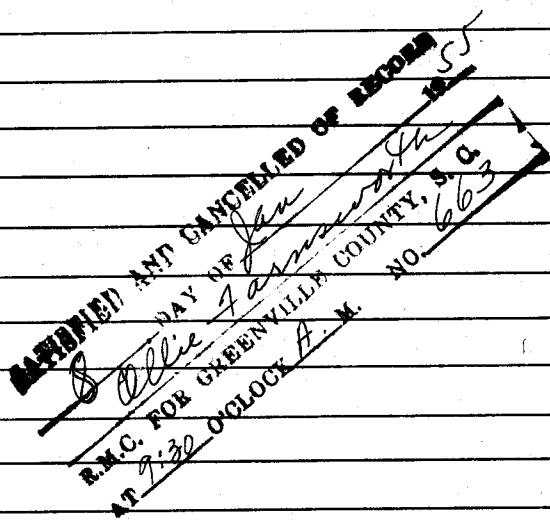 SATISFIED AND CANCELLED OF RECORD
8 DAY OF Jan 1955
Ollie Farnsworth
R.M.C. FOR GREENVILLE COUNTY, S. C.
AT 9:30 O'CLOCK A. M. NO. 663